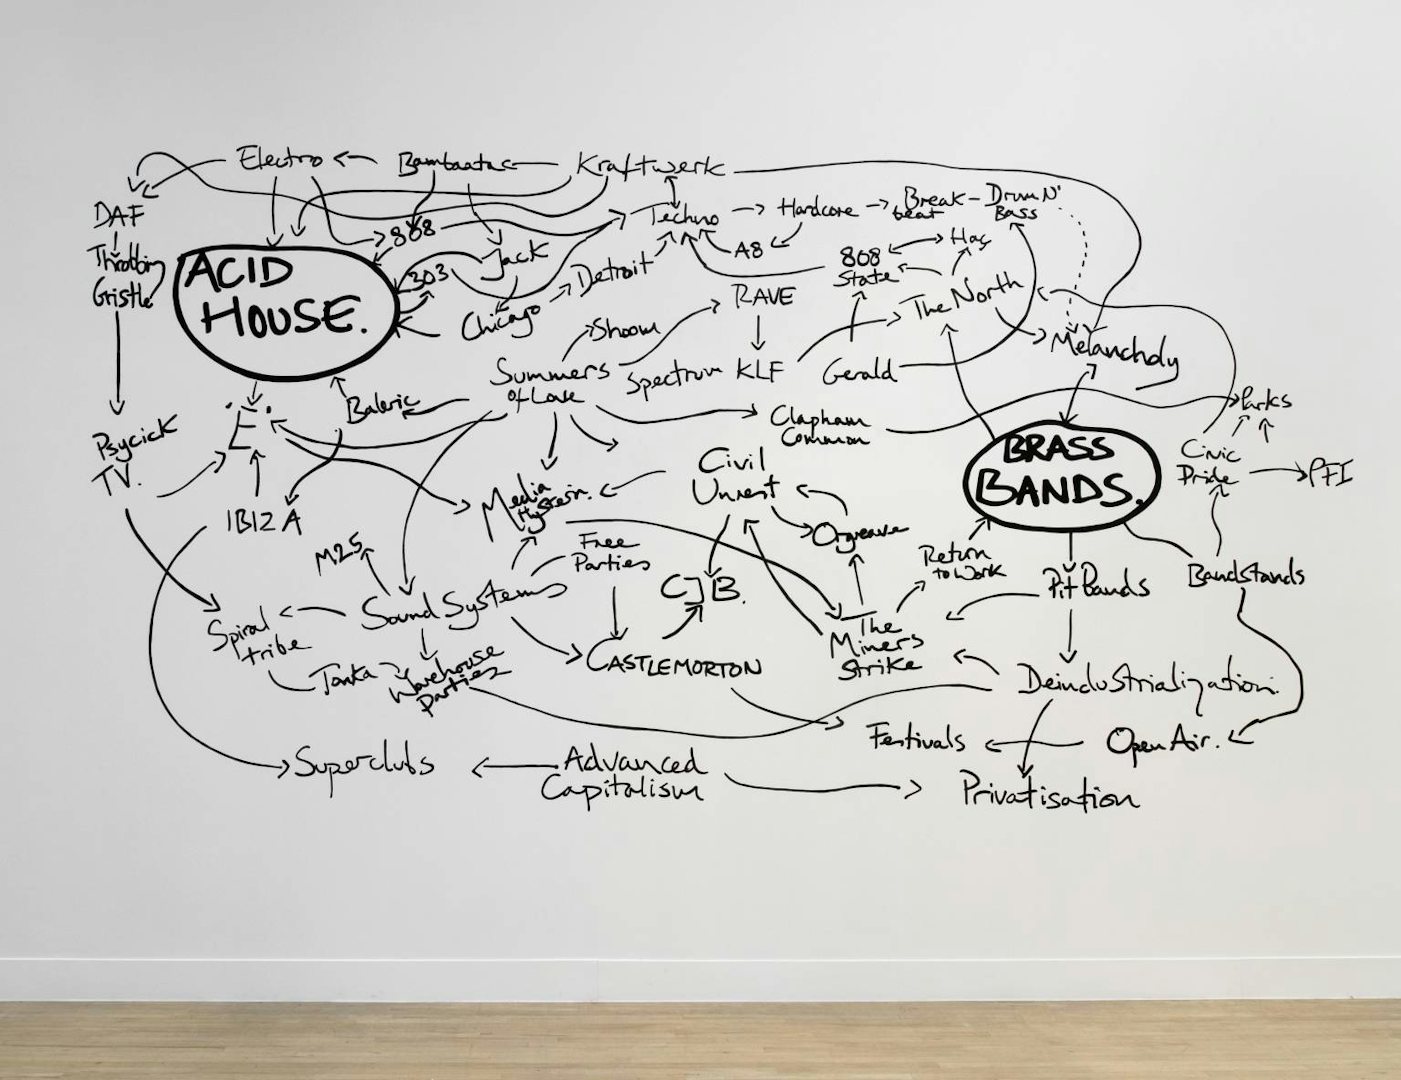 Electro
Bambaataa
Kraftwerk
DAF
Throbbing
Gristle
808
Techno
Hardcore
Break
beat
Drum N'
Bass
A8
Hac
808
State
Jack
303
Detroit
Chicago
ACID
HOUSE.
RAVE
The North
Shoom
Summers
of Love
Spectrum
KLF
Gerald
Melancholy
Baleric
'E'
Clapham
Common
Parks
Psycick
TV.
BRASS
BANDS.
Civic
Pride
PFI
Civil
Unrest
Media
Hysteria.
IBIZA
M25
Free
Parties
Orgreave
Return
to Work
Pit Bands
Bandstands
CJB.
Sound Systems
Spiral
tribe
The
Miners
Strike
CASTLEMORTON
Tonka
Warehouse
Parties
Deindustrialization.
Festivals
Open Air.
Superclubs
Advanced
Capitalism
Privatisation